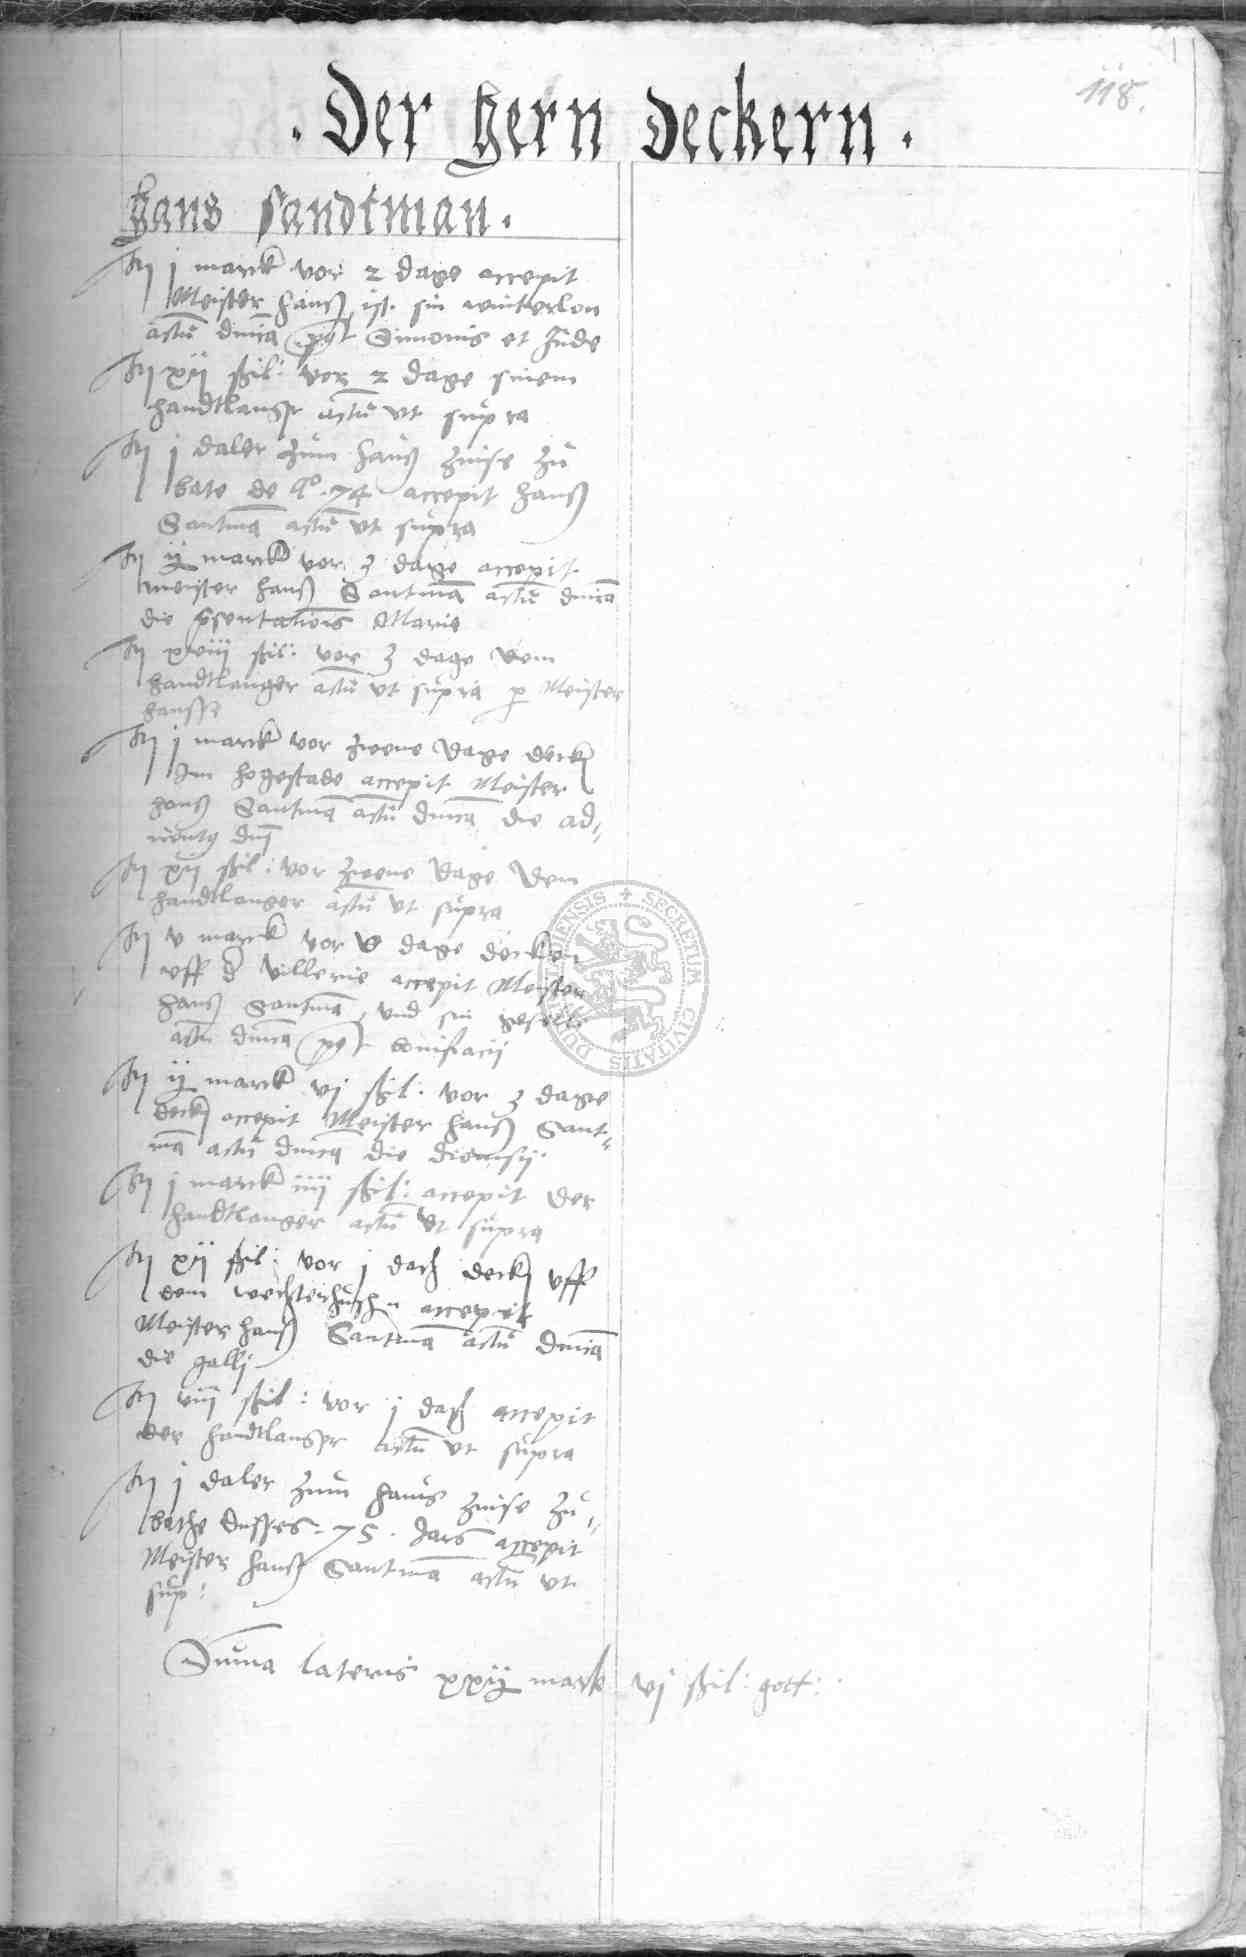 118.
. Der hern deckern .
Hans Sandtman .
Itẽ j marck vor 2 dage accepit
Meister Hanß ist sin winterlon
actũ dnica post Simonis et Jude
Itẽ xij ßil: vor 2 dage sinem
handtlanger actũ ut supra
Itẽ j daler zum hauß zinse zu
bate de aº. 74 accepit Hanß
Santmã actũ ut supra
Itẽ ij marck vor 3 dage accepit
meister Hanß Santmã actũ dnica
die psentationis Marie
Itẽ xviij ßil: vor 3 dage dem
handtlanger actũ ut supra p Meister
Hansse
Itẽ j marck vor zweene dage deck
Im hogestade accepit Meister
Hanß Santmã actũ dnica die ad-
ventq dni
Itẽ xij ßil: vor zweene dage dem
handtlanger actũ ut supra
Itẽ v marck vor v dage decken
uff d villerie accepit Meister
Hanß Santmã und sin gesell
actũ dnica post bonifacij
Itẽ ij marck vj ßil: vor 3 dage
deck accepit Meister Hanß Sant-
mã actũ dnica die dionisij
Itẽ j marck iiij ßil: accepit der
handtlanger actũ ut supra
Itẽ xij ßil: vor j dach deck uff
dem accepit
Meister Hanß Santmã actũ dnica
die galli
Itẽ viij ßil: vor j dach accepit
der handtlanger actũ ut supra
Itẽ j daler zum hauß zinse zu-
bathe dusses 75. Jars accepit
Meister Hanß Santmã actũ ut
sup:
Suma lateris xxij mark vj ßil: gott:
SECRETUM CIVITATIS